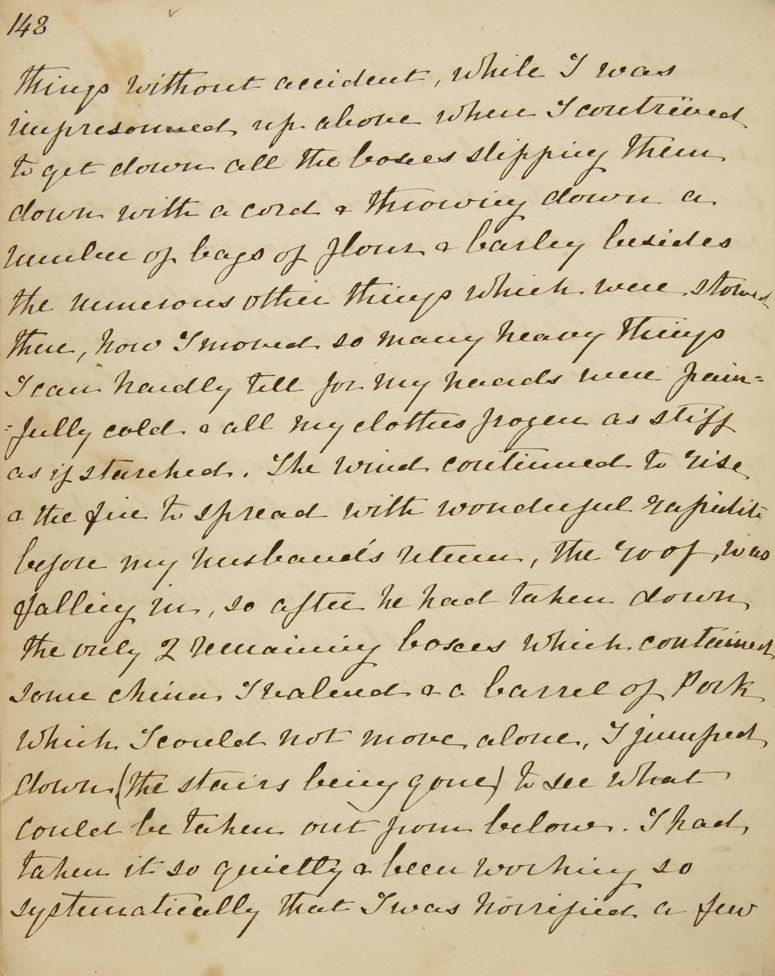 148
things without accident, while I was
impresonned up above when I contrived
to get down all the boxes slipping them
down with a cord & throwing down a
number of bags of flour & barley besides
the numerous other things which were stowed
there, how I moved so many heavy things
I can hardly tell for my hands were pain=
=fully cold & all my clothes frozen as stiff
as if starched. The wind continued to rise
& the fire to spread with wonderful rapidity
before my husband's return, the roof was
falling in, so after he had taken down
the only 2 remaining boxes which contained
some china I valued & a barrel of Pork
which I could not move alone, I jumped
down (the stairs being gone) to see what
could be taken out from below. I had
taken it so quietly & been working so
systematically that I was horrified a few